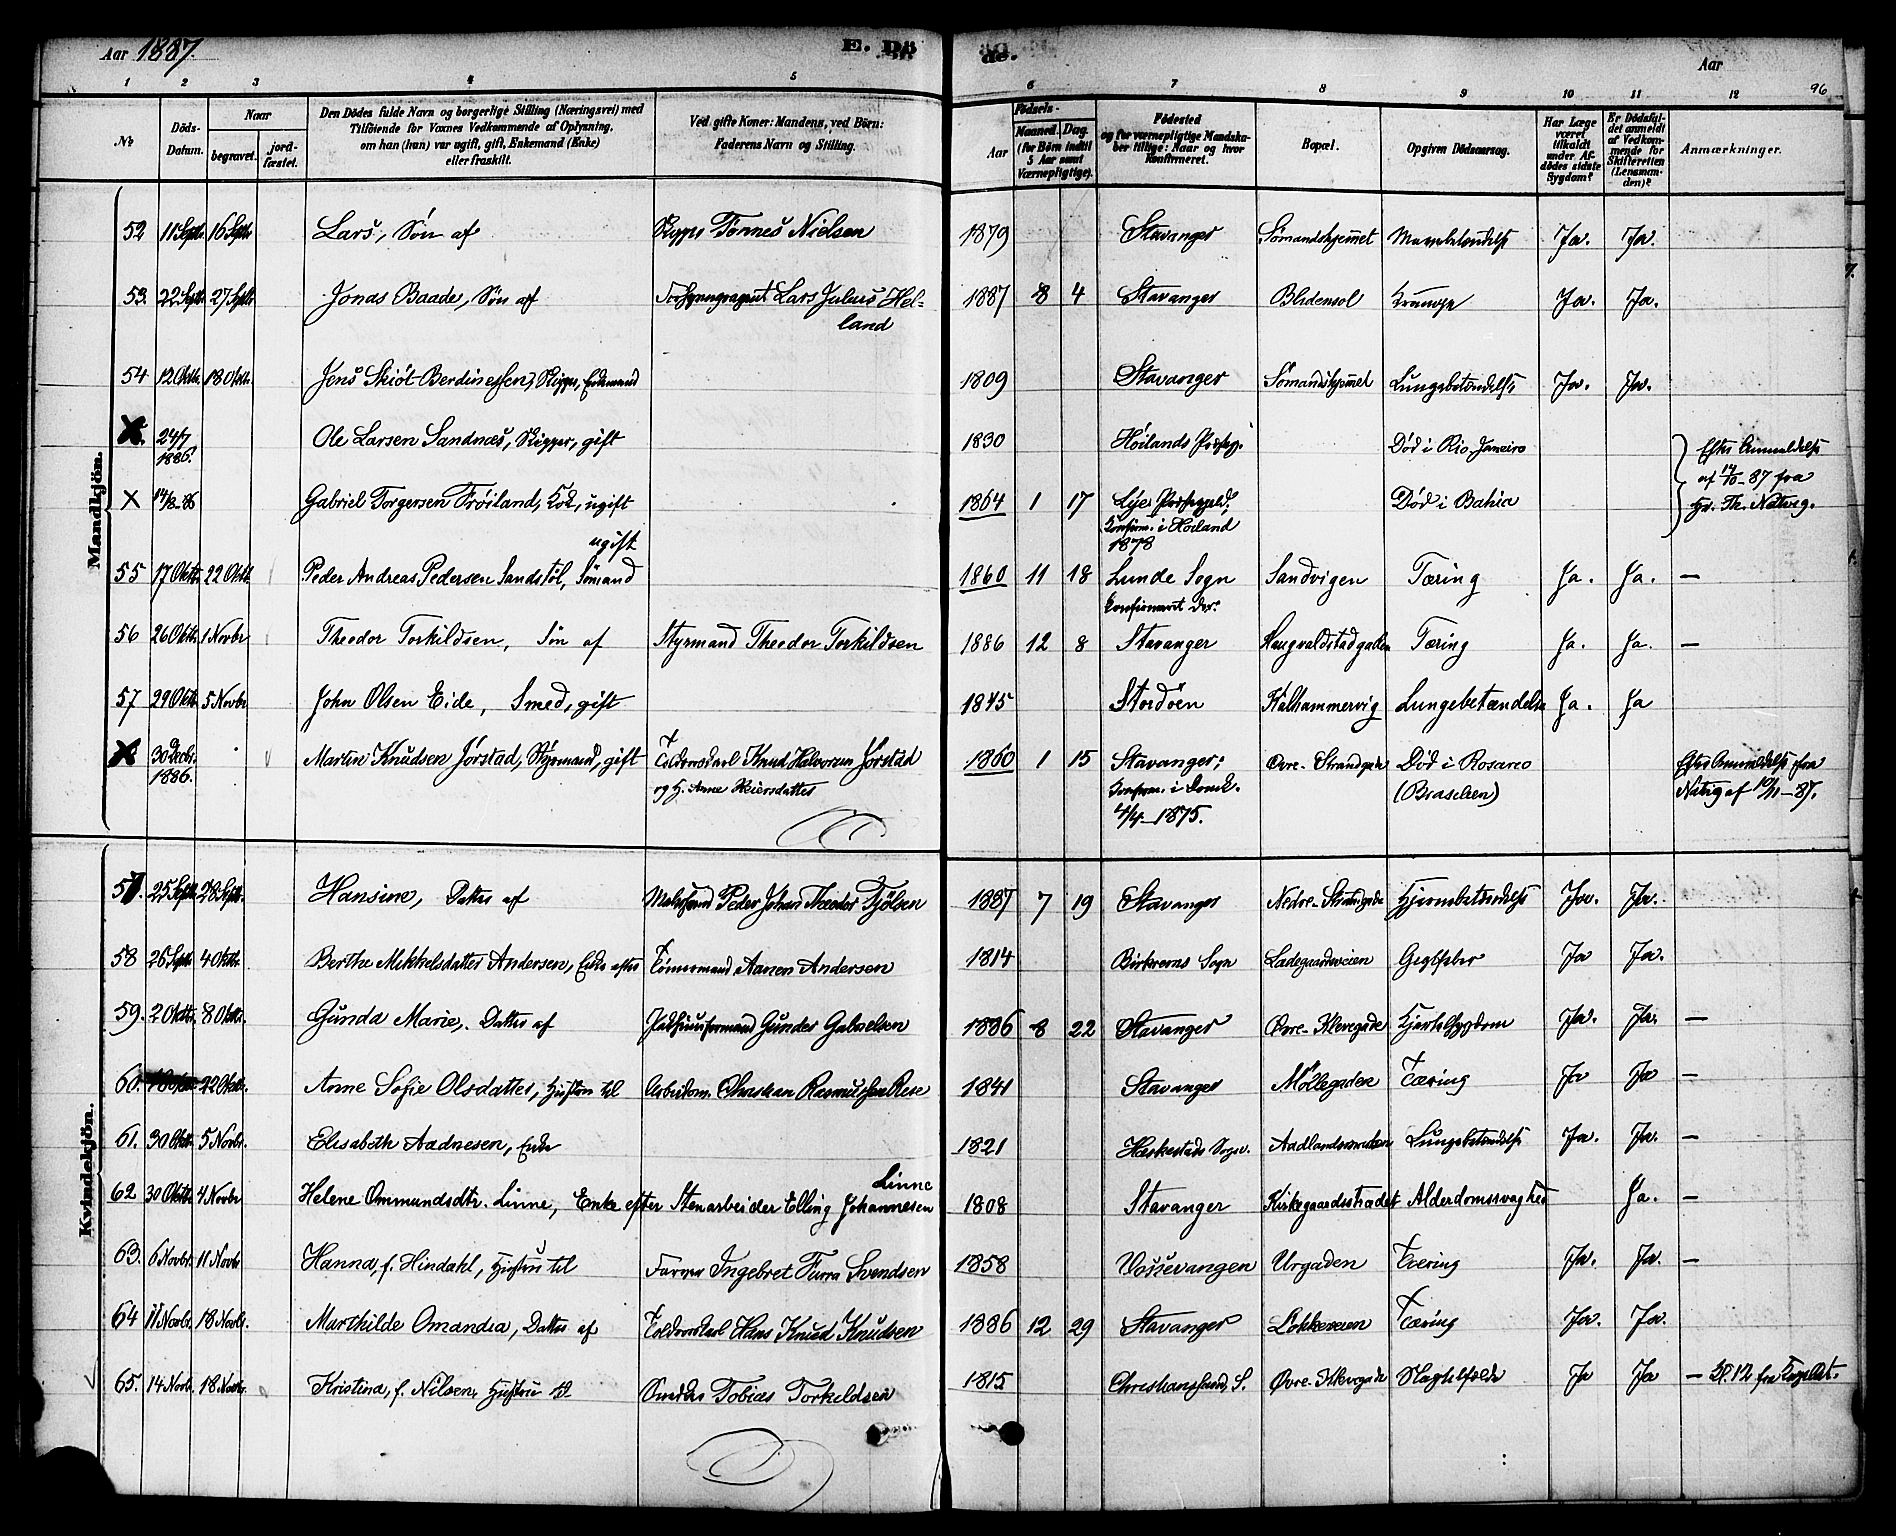 Aar 1887.
E. Dö
de.
Aar
96
1 2 3 4 5 6 7 8 9 10 11 12
No
Döds-Datum.
Naar
begravet.
jord-fæstet.
Den Dödes fulde Navn og borgerlige Stilling (Næringsvei) med
Tilföiende for Voxnes Vedkommende af Oplysning,
om han (hun) var ugift, gift, Enkemand (Enke)
eller fraskilt.
Ved gifte Koner: Mandens, ved Börn:
Faderens Navn og Stilling.
Födsels-
Aar
Maaned. Dag.
(for Börn indtil 5 Aar samt Værnepligtige).
Födested
og for værnepligtige Mandska-
ber tillige: Naar og hvor
Konfirmeret.
Bopæl.
Opgiven Dödsaarsag.
Har Læge været tilkaldt under Af-dödes sidste Sygdom?
Er Dödsfal-det anmeldt af Vedkom-mende for Skifteretten (Lensman-den)?
Anmærkninger.
Mandkjön.
52 11 Septr. 16 Septr. Lars, Sön af Törnes Nielsen 1879 Stavanger Sömandshjemmet Ja. Ja.
53. 22 Septr. 27 Septr. Jonas Baade, Sön af Lars Julius Hel-
land 1887 8 4 Stavanger Blidensol Ja. Ja.
54 12 Oktr. 18 Oktr. Jens Skiöt Berdinessen, Skipper, Enkemand 1809 Stavanger Sömandshjemmet Lungebetændelse Ja. Ja.
24/7
1886. Ole Larsen Sandnæs, Skipper, gift 1830 Höilands Död i Rio Janeiro
Efter Anmeldelse
af 14/10-87 fra
× 14/8-86 Gabriel Torgersen Fröiland, Kok, ugift 1864 1 17 Lye
Konfirm. i Höiland
1878 Död i Bahia
ugift
55 17 Oktr. 22 Oktr. Peder Andreas Pedersen Sandstöl, Sömand 1860 11 18 Lunde Sogn
Konfirmeret der. Sandvigen Tæring Ja. Ja. —
56 26 Oktr. 1 Novbr Theodor Torkildsen, Sön af Styrmand Theodor Torkildsen 1886 12 8 Stavanger Haugvaldstadgaden Tæring Ja. Ja. —
57 29 Oktr. 5 Novbr John Olsen Eide, Smed, gift 1845 Stordöen Kalhammervig Lungebetændelse Ja. Ja
30 Decbr.
1886. Martin Knudsen Jörstad, Styrmand, gift Knud Halvorsen Jörstad
og H. Anne 1860 1 15 Stavanger;
Konfirm. i Domk.
4/4-1875. Övre-Strandgade Död i Rosario
(Brasilien)
Efter Anmeldelse fra
Natvig af 10/11-87.
Kvindekjön.
57. 25 Septr. 28 Septr. Hansine, Datter af Peder Johan Theodor Fjölsen 1887 7 19 Stavanger Nedre-Strandgade Hjernebetændelse Ja. Ja.
58 26 Septr. 4 Oktr. Berthe Mikkelsdatter Andersen, Enke efter Tömmermand Aanen Andersen 1814 Birkrems Sogn Ladegaardsveien Gigtfeber Ja Ja.
59. 2 Oktr. 8 Oktr. Gunda Marie, Datter af Gunder Gabrielsen 1886 8 22 Stavanger Övre-Klevegade Ja. Ja. —
60. 22 Oktr. Anne Sofie Olsdatter, Hustru til Arbeidsm. Christian Rasmussen 1841 Stavanger Möllegaden Tæring Ja Ja —
61. 30 Oktr. 5 Novbr. Elisabeth Aadnesen, Enke 1821 Heskestads Sogn. Lungebetændelse Ja. Ja. —
62 30 Oktbr 4 Novbr Helene Ommundsdtr. Linne, Enke efter Stenarbeider Elling Johannesen
Linne 1808 Stavanger Kirkegaardsstrædet Alderdomssvaghed Ja. —
63. 6 Novbr. 11 Novbr Hanna, f. Hindahl, Hustru til Farver Ingebret Furra Svendsen 1858 Vossevangen Urgaden Tæring Ja. Ja. —
64 11 Novbr. 18 Novbr. Marthilde Omandia, Datter af Hans Knud Knudsen 1886 12 29 Stavanger Lökkeveien Tæring Ja. Ja.
65. 14 Novbr. 18 Novbr. Kristina, f. Nilsen, Hustru til Tobias Torkeldsen 1815 Christianssand, S. Övre-Klevegade Ja Ja —